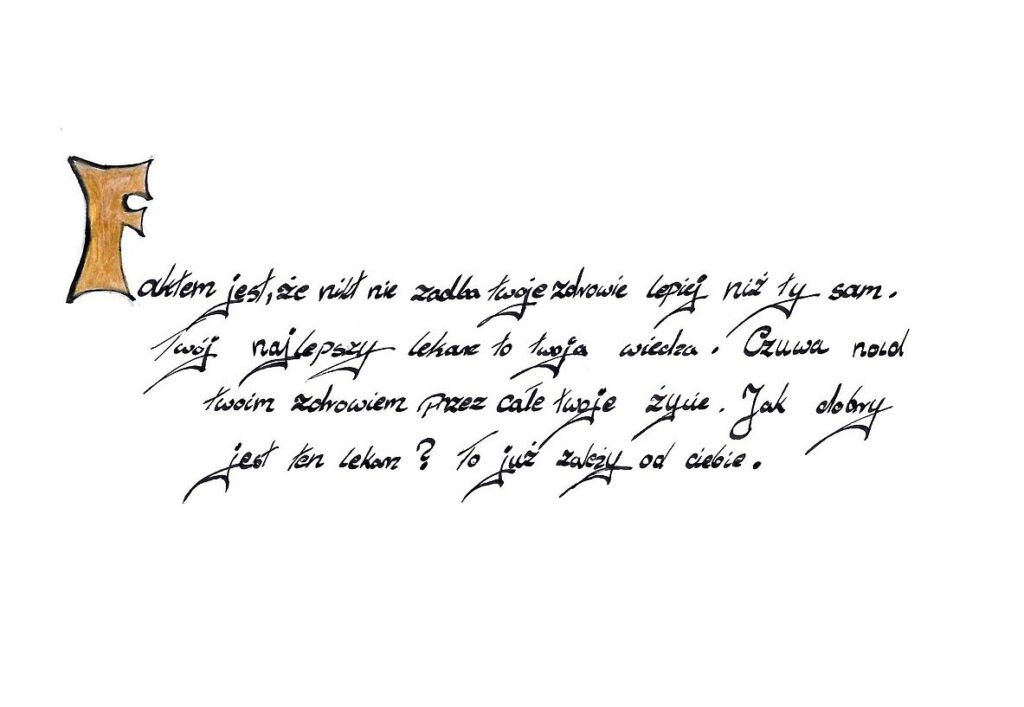 Faktem jest, że nikt nie zadba twoje zdrowie lepiej niż ty sam.
Twój najlepszy lekarz to twoja wiedza. Czuwa nad
twoim zdrowiem przez całe twoje życie. Jak dobry
jest ten lekarz? To już zależy od ciebie.